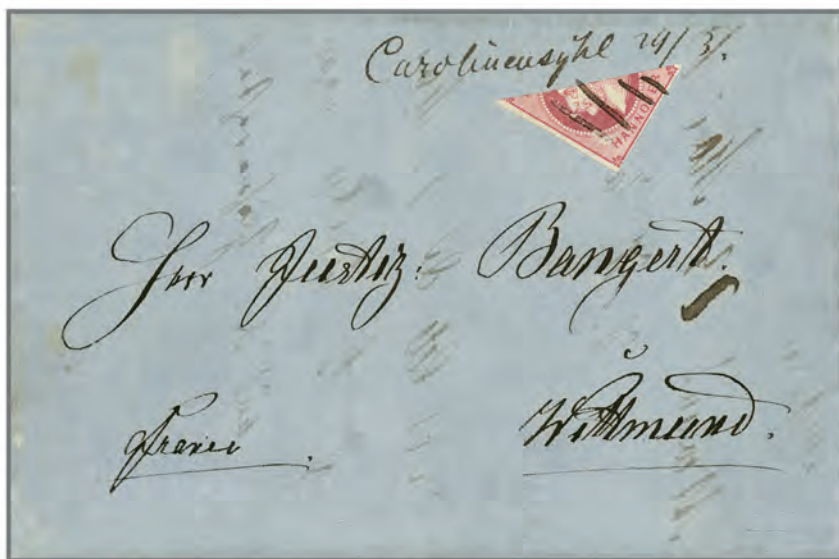 Carolinensyhl 29/3.
HANNOVER
Herr Justiz: Bangert.
franco
Wittmund.